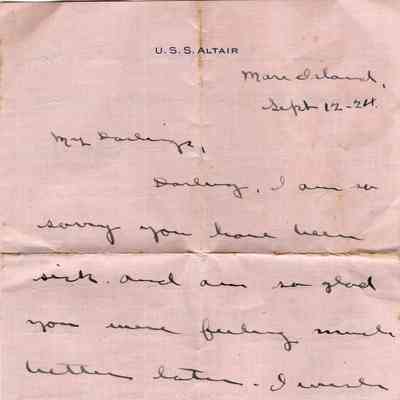 U.S.S. ALTAIR
Mare Island,
Sept 12-24.
My Darlings,
Darling, I am so
sorry you have been
sick. and am so glad
you were feeling much
better later. I wish